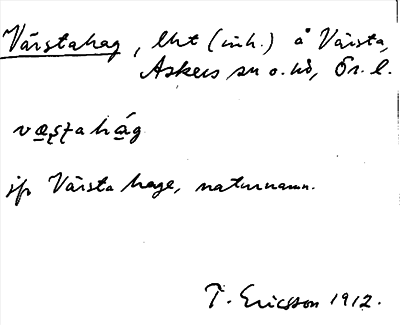 Värstahag, lht (inh.) å Värsta,
Askers sn o. hd, Ör. l.
væʂʈahág
jfr Värsta hage, naturnamn.
T. Ericsson 1912.